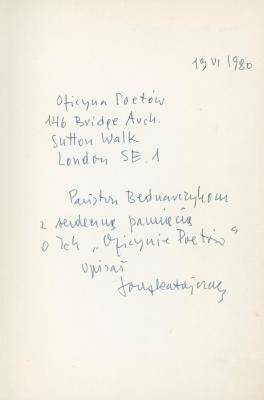 19 VI 1980
Oficyna Poetów
146 Bridge Arch.
Sutton Walk
London SE. 1
Państwu Bednarczykom
z serdeczną pamięcią
o Ich „Oficynie Poetów”
wpisał